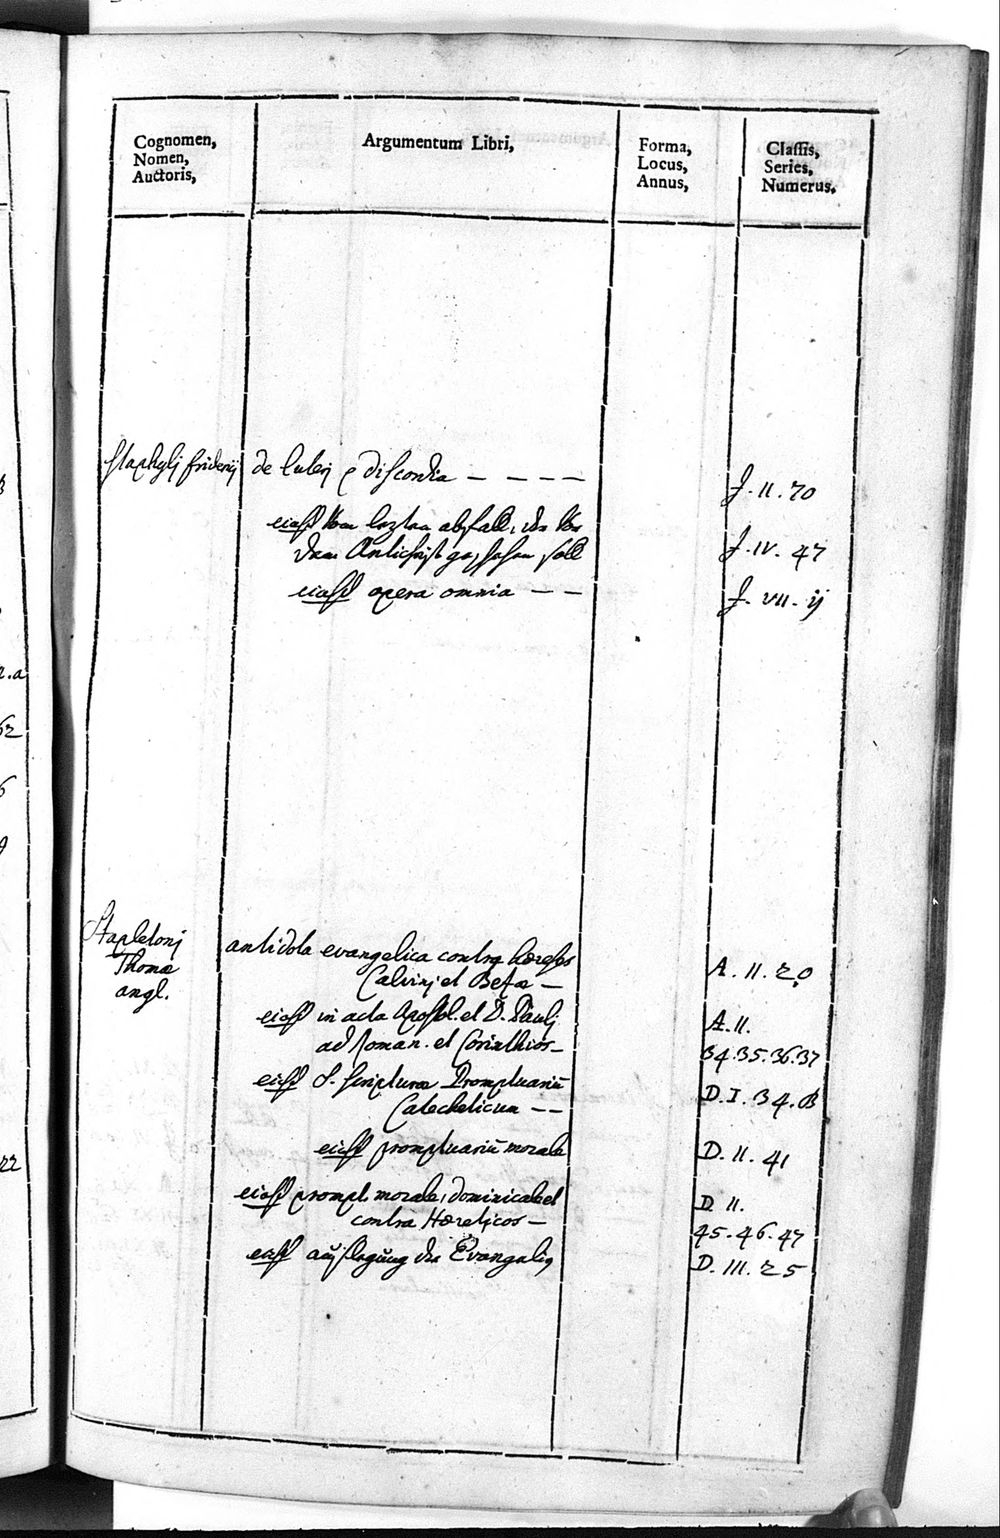 Cognomen,
Nomen,
Auctoris,
Argumentum Libri,
Forma,
Locus,
Annus,
Classis,
Series,
Numerus.
Staphylj friderij de Luterj discordia - - - -
J. II. 70
eiusd Vom lezten abfall, der Vor
dem Antichrist geschehen soll
J. IV. 47
eiusd opera omnia - -
J. VII. ij
Stapletonj
Thomæ
angl.
antidota evangelica contra hæreses
Calvinj et Bezæ -
A. II. 20
eiusd in acta Apostol. et D. Paulj
ad Roman. et Corinthios -
A. II.
34. 35. 36. 37
eiusd S. Scripturæ Promptuariũ
Catecheticum - -
D. I. 34. B
eiusd promptuariũ morale
D. II. 41
eiusd prompt. morale, dominicale et
contra Hæreticos -
D. II.
45. 46. 47
eiusd außlegung der Evangelien
D. III. 25
2.a
62
6
9
22